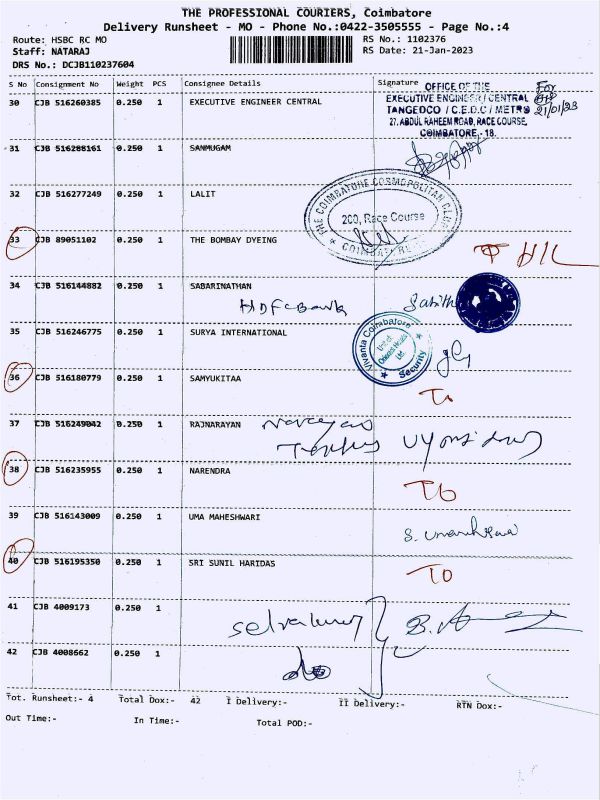 THE PROFESSIONAL COURIERS, Coimbatore
Delivery Runsheet - MO - Phone No.:0422-3505555 - Page No.:4
Route: HSBC RC MO
RS No.: 1102376
Staff: NATARAJ
RS Date: 21-Jan-2023
DRS No.: DCJB110237604
S No Consignment No Weight PCS Consignee Details Signature
30 CJB 516260385 0.250 1 EXECUTIVE ENGINEER CENTRAL
OFFICE OF THE
EXECUTIVE ENGINEER / CENTRAL
TANGEDCO / C.E.D.C / METRO
27, ABDUL RAHEEM ROAD, RACE COURSE,
COIMBATORE - 18.
For
21/01/23
31 CJB 516288161 0.250 1 SANMUGAM
32 CJB 516277249 0.250 1 LALIT
THE COIMBATORE COSMOPOLITAN CLUB
200, Race Course
COIMBATORE
33 CJB 89051102 0.250 1 THE BOMBAY DYEING
34 CJB 516144882 0.250 1 SABARINATHAN
HDFC Bank
35 CJB 516246775 0.250 1 SURYA INTERNATIONAL
Vivanta Coimbatore
Unit of
Oriental Hotels
Ltd
Security
36 CJB 516180779 0.250 1 SAMYUKITAA
37 CJB 516249042 0.250 1 RAJNARAYAN
38 CJB 516235955 0.250 1 NARENDRA
39 CJB 516143009 0.250 1 UMA MAHESHWARI
40 CJB 516195350 0.250 1 SRI SUNIL HARIDAS
TO
41 CJB 4009173 0.250 1
42 CJB 4008662 0.250 1
Tot. Runsheet:- 4 Total Dox:- 42 I Delivery:- II Delivery:- RTN Dox:-
Out Time:- In Time:- Total POD:-